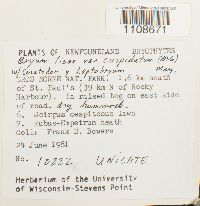 1108671
PLANTS OF NEWFOUNDLAND BRYOPHYTES
Bryum var cuspidatum
w/ Ceratodon & Leptobryum
GROS MORNE NAT. PARK) 1.6 km south
of St. Paul's (39 km N of Rocky
Harbour). In raised bog on east side
of road. dry hummock.
6. Scirpus cespitosus lawn
7. Rubus-Empetrum heath
Coll: Frank D. Bowers
24 June 1981
No. 10222 UNICATE
Herbarium of the University
of Wisconsin-Stevens Point